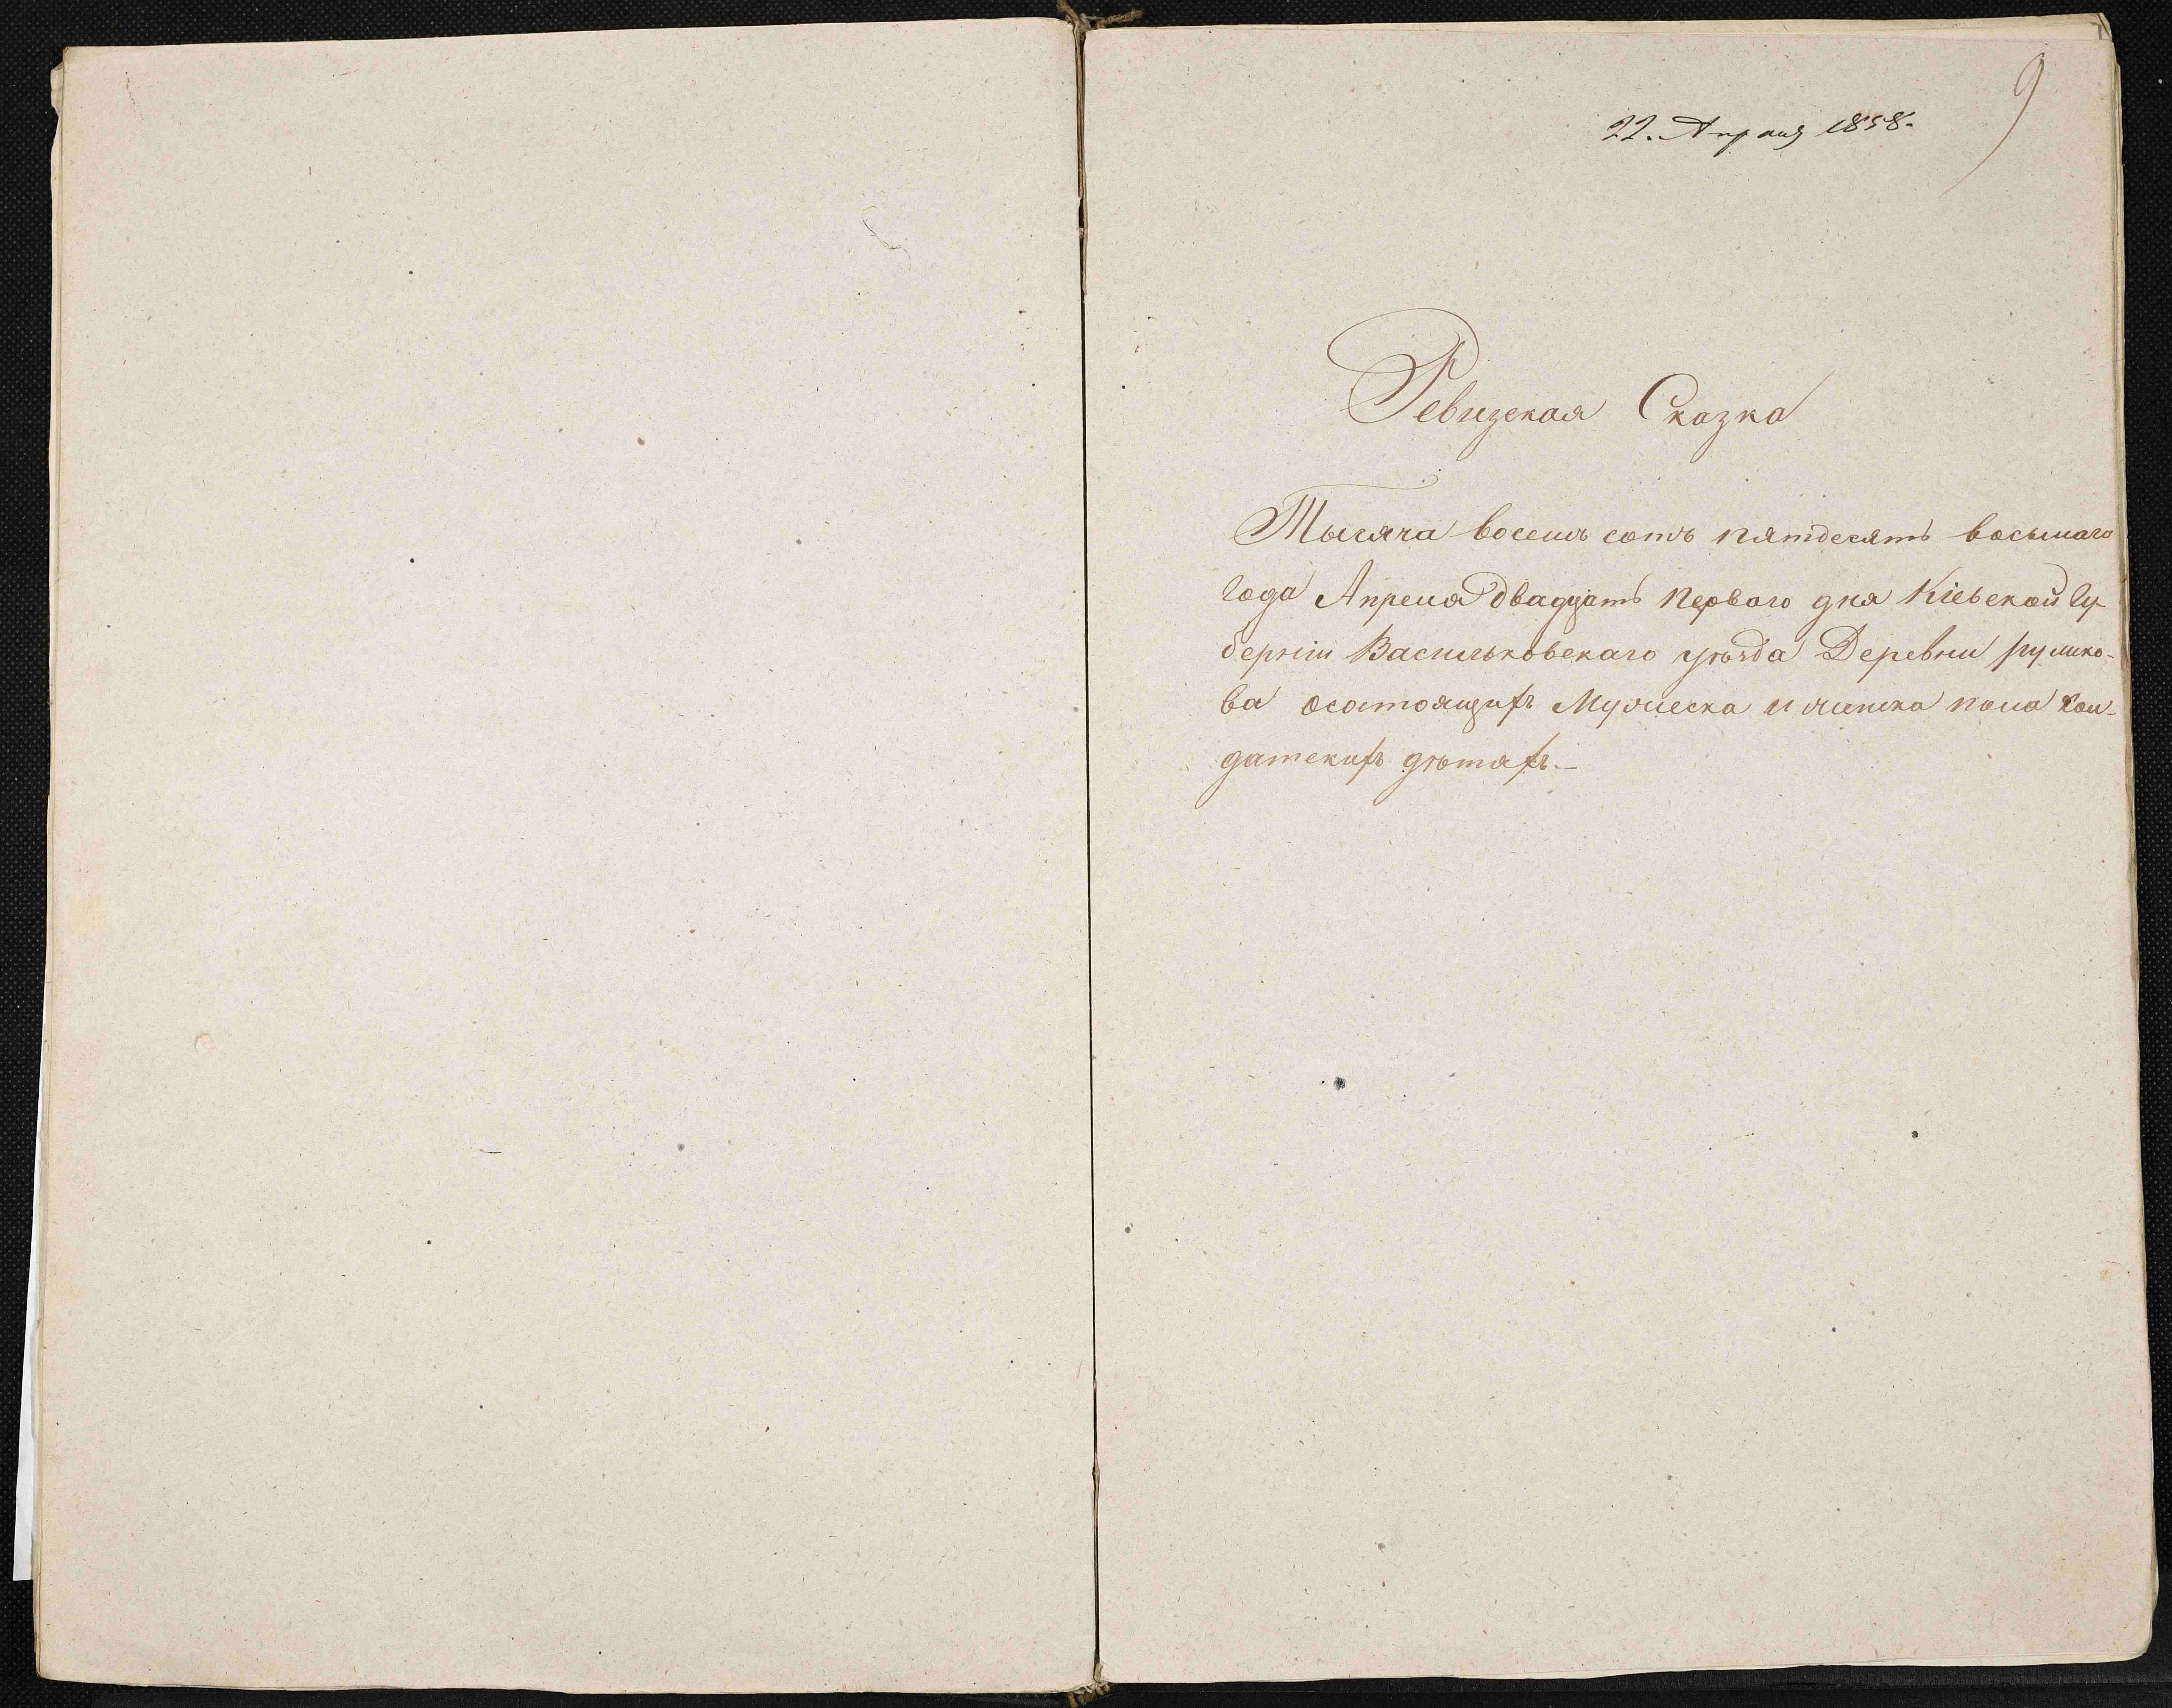 9
22. Апреля 1858.
Ревизская Сказка
Тысяча восемь сотъ пятдесятъ восьмаго
года Апреля двадцать Перваго дня Кіевской Гу-
берніи Васильковскаго уѣзда Деревни
ва осатоящихъ Мужеска и женска пола Сол-
датскихъ дѣтяхъ.—